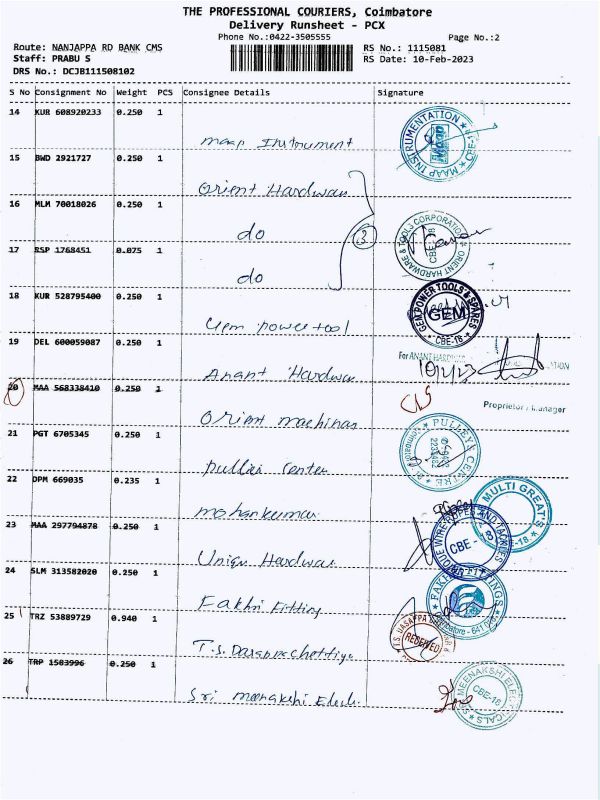 THE PROFESSIONAL COURIERS, Coimbatore
Delivery Runsheet - PCX
Phone No.:0422-3505555
Page No.:2
Route: NANJAPPA RD BANK CMS
RS No.: 1115081
Staff: PRABU S
RS Date: 10-Feb-2023
DRS No.: DCJB111508102
S No Consignment No Weight PCS Consignee Details Signature
14 KUR 608920233 0.250 1
Maap Instrument
MAAP INSTRUMENTATION CBE-18
15 BWD 2921727 0.250 1
Orient Hardwar
16 MLM 70018026 0.250 1
do
3
ORIENT HARDWARE & TOOLS CORPORATION CBE-18
17 RSP 1768451 0.075 1
do
18 KUR 528795400 0.250 1
Gem power tool
GEM POWER TOOLS & SPARES GEM CBE-18
19 DEL 600059087 0.250 1
Anant Hardwar
For ANANT HARDWARE
10/2/23
20 MAA 568338410 0.250 1
Orient machinas
CLS
Proprietor / Manager
21 PGT 6705345 0.250 1
Pullies Center
PULLEYS CENTRE
22 DPM 669035 0.235 1
mohankumar
MULTI GREATS
23 MAA 297794878 0.250 1
Union Hardwar
WIRE ROPES AND TACKLES CBE - 18
24 SLM 313582020 0.250 1
Fakhri Fitting
Coimbatore - 641
25 TRZ 53889729 0.940 1
T.S. Dasappa chettiya
RECEIVED
26 TRP 1503996 0.250 1
Sri meenakshi Elect.
SRI MEENAKSHI ELECTRICALS CBE-18